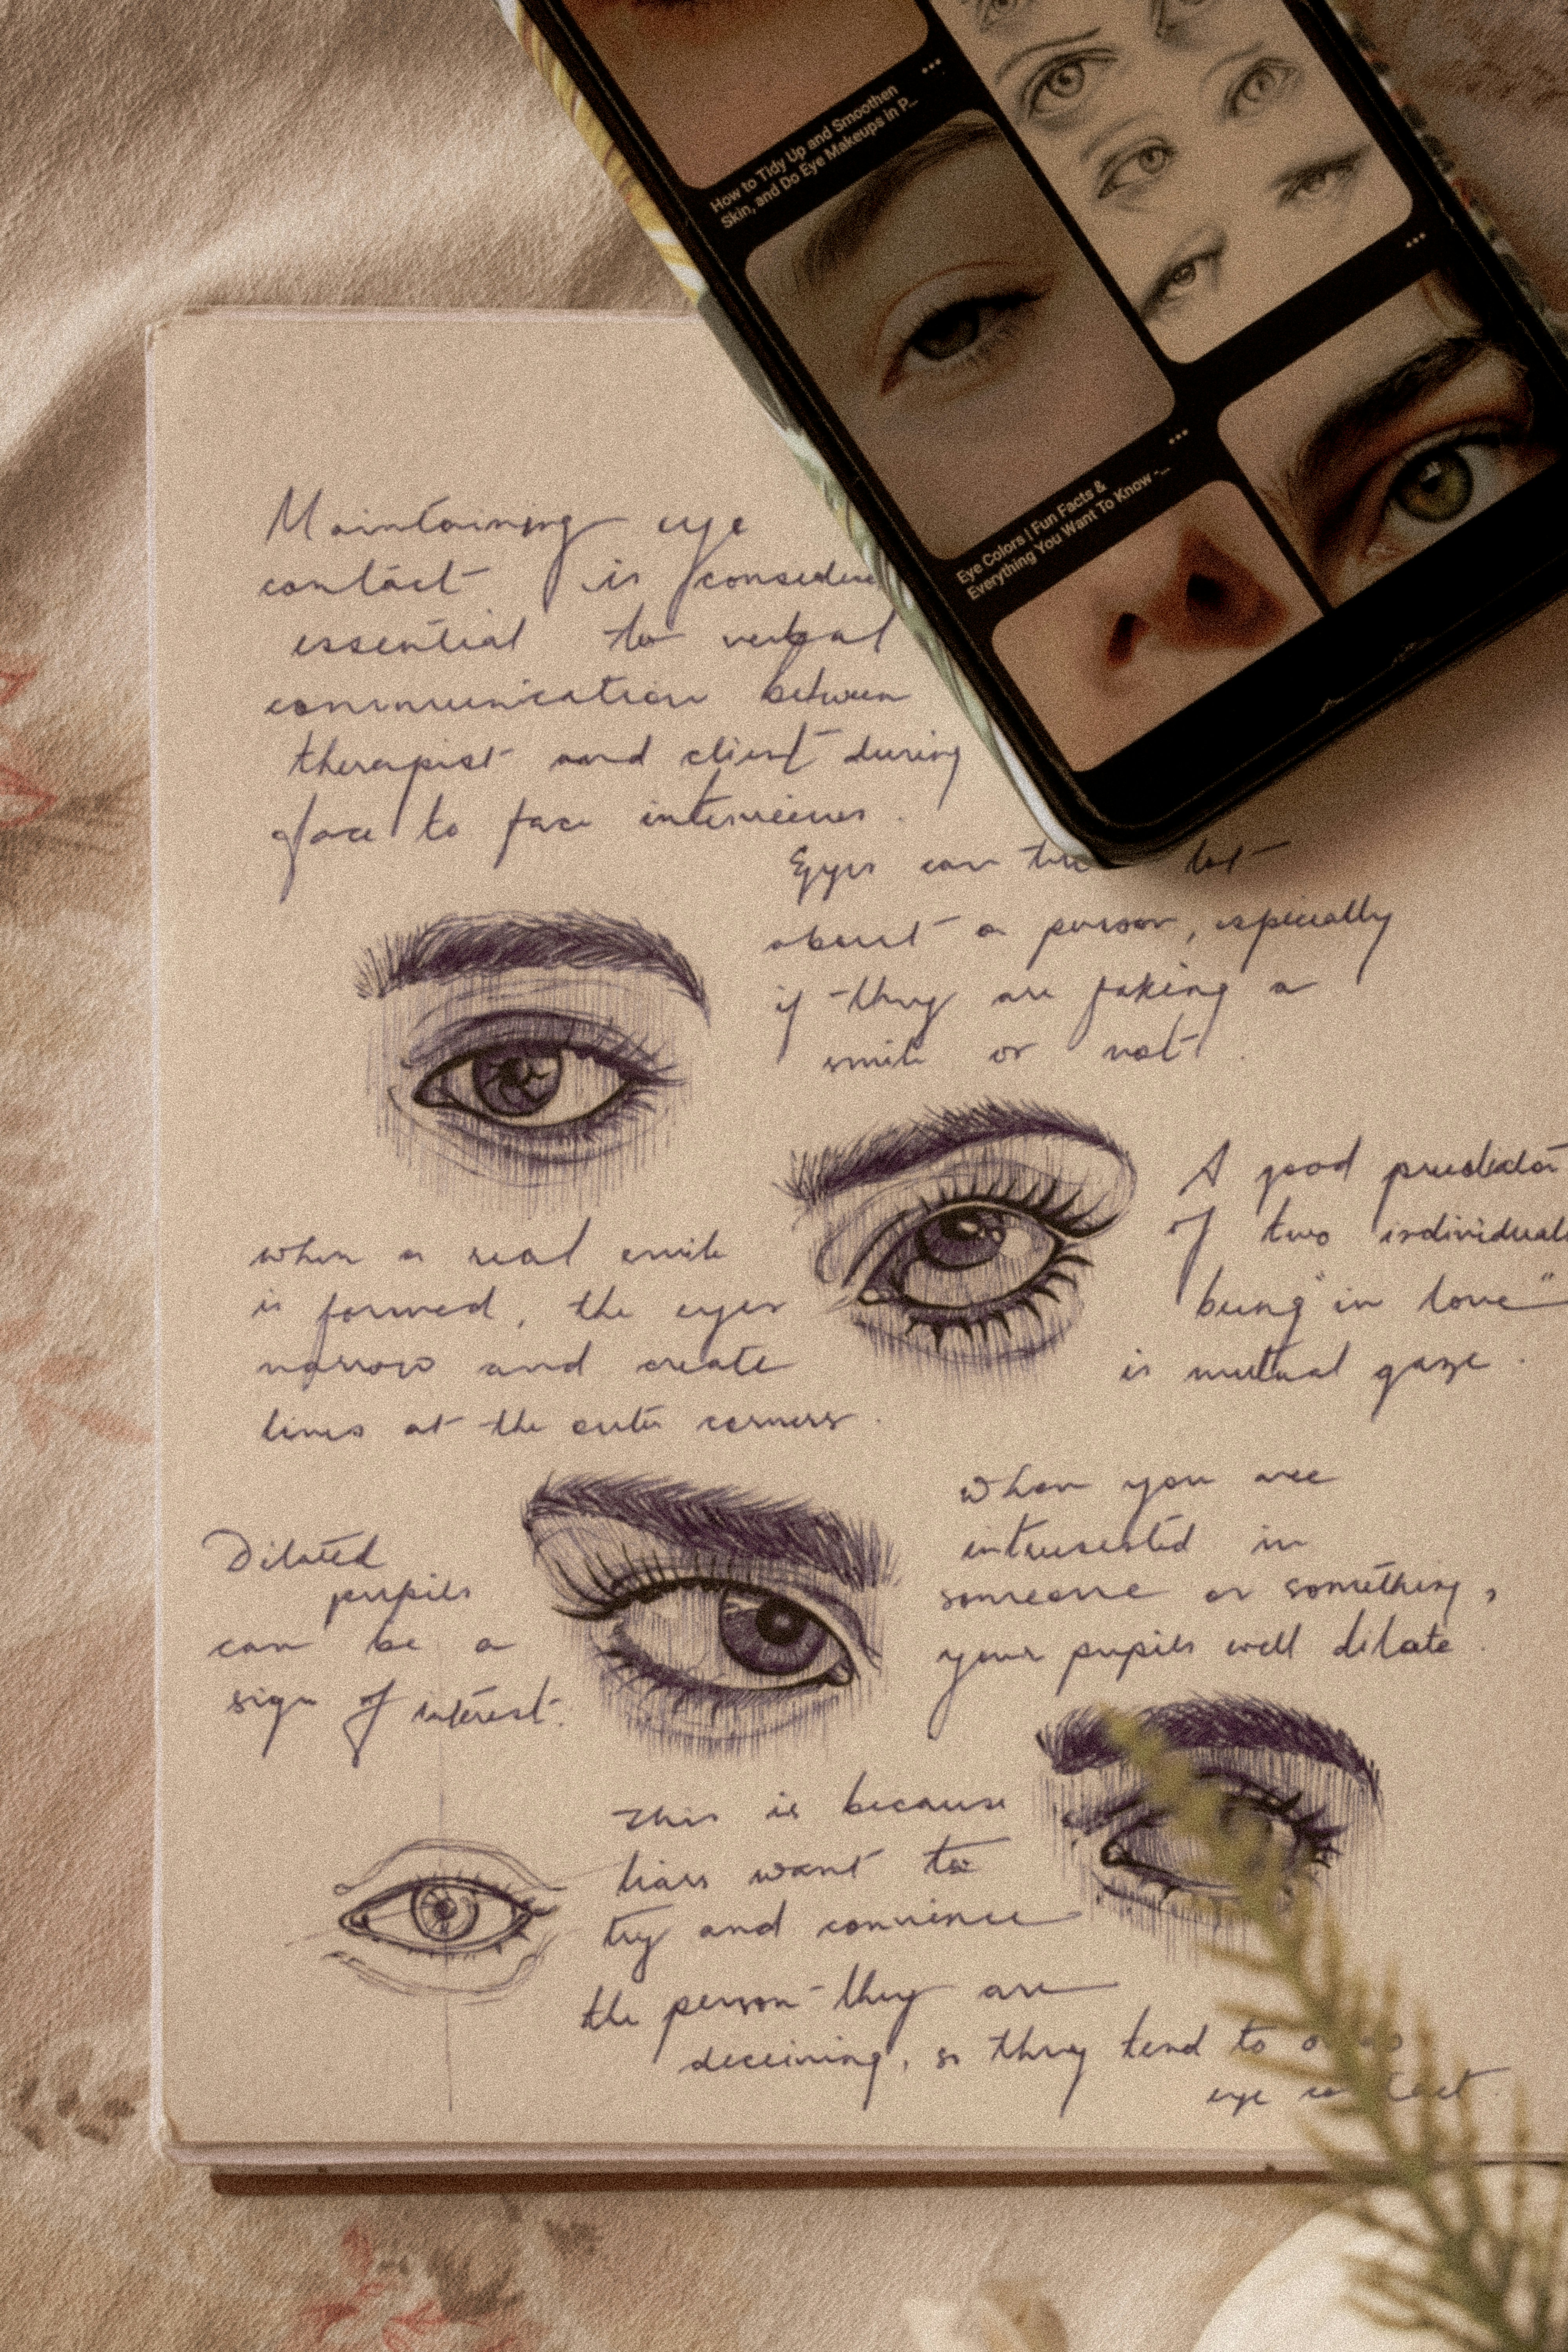 How to Tidy Up and Smoothen
Skin, and Do Eye Makeups in P...
Eye Colors | Fun Facts &
Everything You Want To Know -...
Maintaining eye
contact is
essential to verbal
communication between
therapist and client during
face to face interviews.
Eyes can lot
about a person, especially
if they are faking a
smile or not.
when a real smile
is formed, the eyes
narrow and create
lines at the outer corners.
A good predictor
of two individuals
being "in love"
is mutual gaze.
Dilated
pupils
can be a
sign of interest.
When you are
in
someone or something,
your pupils will dilate.
This is because
liars want to
try and convince
the person they are
deceiving, so they tend to
eye